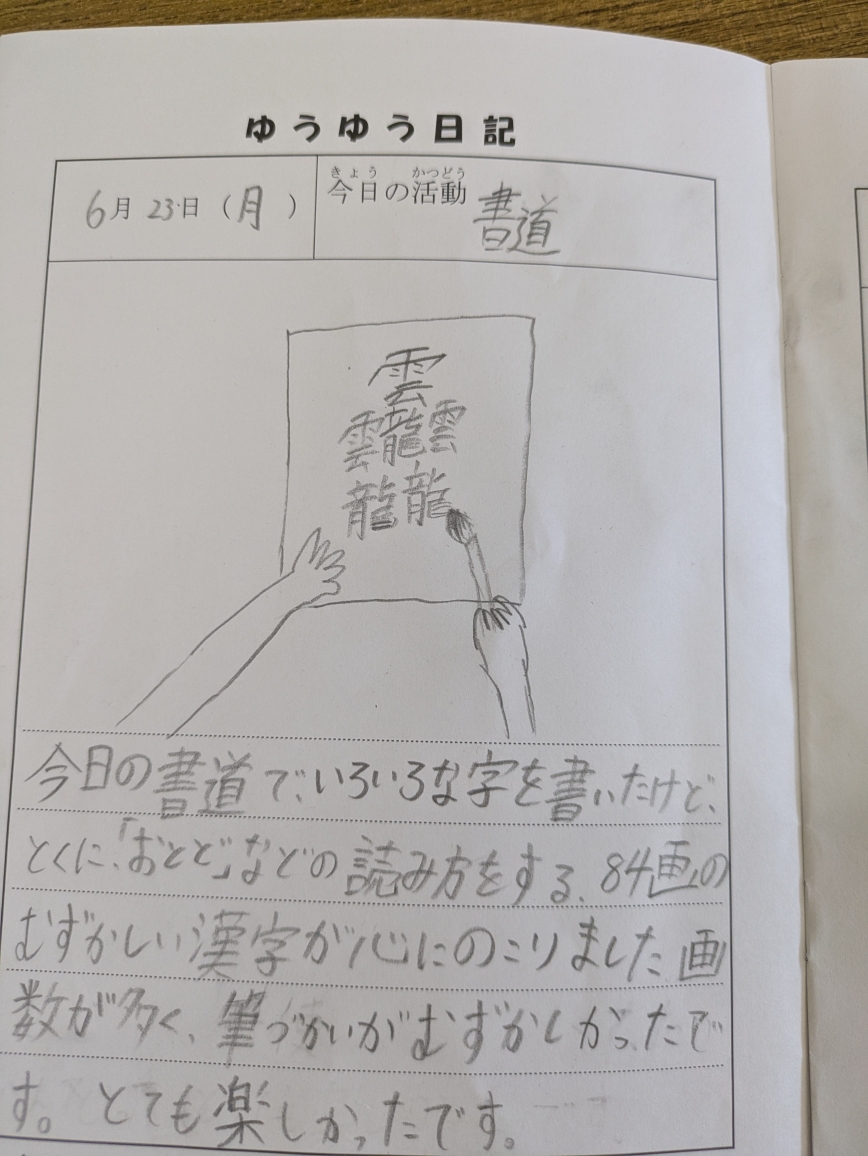 ゆうゆう日記
6月23日(月)
きょう かつどう
今日の活動 書道
雲
雲龍雲
龍龍
今日の書道で、いろいろな字を書いたけど、
とくに、「おとど」などの読み方をする、84画の
むずかしい漢字が心にのこりました画
数が多く、筆づかいがむずかしかったで
す。とても楽しかったです。